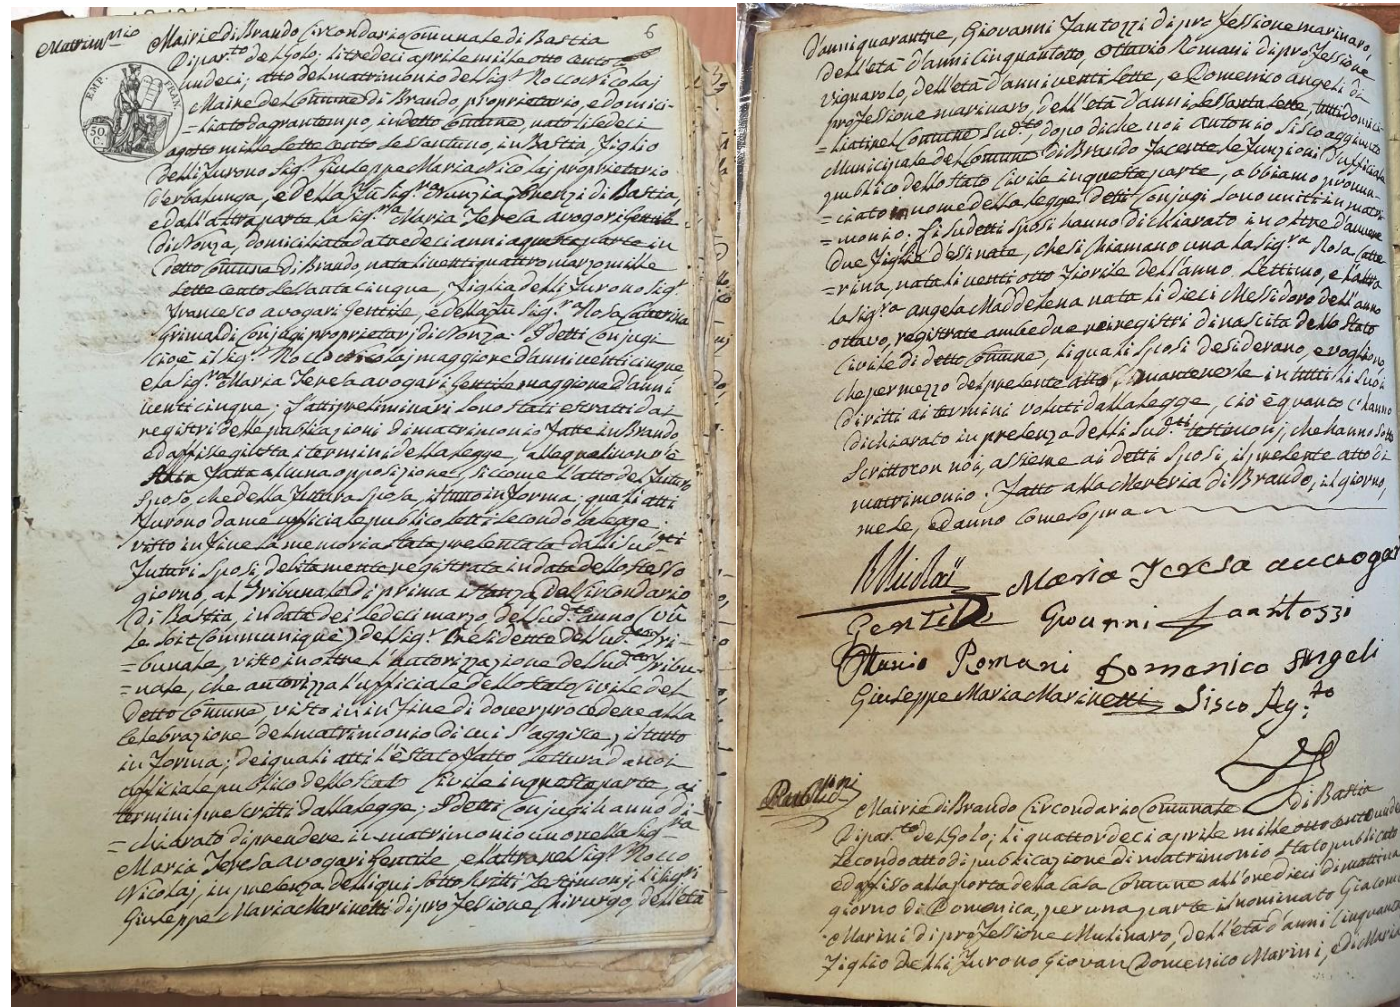 6
Matrim.nio
Mairie di Brando Circondario Comunale di Bastia
Dipar.to del Golo; li tredeci aprile mille otto cento
undeci; atto del matrimonio del Sig.r Rocco Nicolaj
Maire del Comune di Brando, proprietario, e domici-
=liato da gran tempo, in detto Comune, nato li sedeci
agosto mille sette cento sessantuno, in Bastia, figlio
delli furono Sig.r Giuseppe Maria Nicolaj proprietario
d'erbalunga, e della fu Sig.ra Nunzia Forenzi di Bastia,
e dall'altra parte la Sig.ra Maria Teresa avogari Gentile
di Nonza, domiciliata da tredeci anni a questa parte in
detto Comune di Brando, nata li venti quattro marzo mille
sette cento sessanta cinque, figlia delli furono Sig.r
Francesco avogari Gentile, e della fu Sig.ra Rosa Catterina
Grimaldi Conjugi proprietarj di Nonza. I detti Conjugi
cioè il Sig.r Rocco Nicolaj maggiore d'anni venti cinque
e la Sig.ra Maria Teresa avogari Gentile maggiore d'anni
venti cinque; l'atti preliminari sono stati estratti dai
registri delle publicazioni di matrimonio fatte in Brando
ed affisse giusta i termini della legge, alle quali non v'è
stata fatta alcuna opposizione, siccome l'atto del futuro
Sposo, che della futura Sposa, il tutto in forma; quali atti
furono da me ufficiale publico letti secondo la legge;
visto in fine la memoria stata presentata dalli sud.ti
futuri Sposi debitamente registrata in data dello stesso
giorno, al Tribunale di prima istanza del Circondario
di Bastia, in data dei sedeci marzo del sud.to anno (vû
le soit Communiqué) del Sig.r Presidente del sud.to Tri-
=bunale, visto inoltre l'autorizzazione del sud.to Tribu-
=nale, che autorizza l'ufficiale dello stato Civile del
detto Comune, visto in in fine di dover procedere alla
celebrazione del matrimonio di cui s'aggisce, il tutto
in forma; dei quali atti l'è stato fatto lettura da noi
officiale publico dello stato Civile in questa parte, ai
termini prescritti dalla legge; I detti Conjugi hanno di-
=chiarato di prendere in matrimonio uno nella Sig.ra
Maria Teresa avogari Gentile, e l'altra nel Sig.r Rocco
Nicolaj, in presenza delli qui sotto scritti Testimonj, li Sig.ri
Giuseppe Maria Marinetti di professione Chirurgo, dell'età
EMP. FRAN.
50 C.
d'anni quarantre, Giovanni Fantozzi di professione marinaro,
dell'età d'anni cinquantotto, Ottavio Romani di professione
vignarolo, dell'età d'anni venti sette, e Domenico angeli di
professione marinaro, dell'età d'anni sessanta sette, tutti domici-
liati nel Comune sud.to, dopo di che noi Antonio, Sisco aggiunto
Municipale del Comune di Brando facente le funzioni d'ufficiale
publico dello stato Civile in questa parte, abbiamo pronun-
=ciato in nome della legge detti Conjugi sono uniti in matri-
=monio. I sudetti Sposi hanno dichiarato inoltre d'avere
due figlie d'essi nate, che si chiamano una la Sig.ra Rosa Catte
rina, nata li venti otto fiorile dell'anno Settimo, e l'altra
la Sig.ra angela Maddelena nata li dieci Messidoro dell'anno
ottavo, registrate ambedue nei registri di nascita dello stato
Civile di detto Comune, li quali Sposi desiderano, e vogliono
che per mezzo del presente atto mantenerle in tutti li suoi
diritti ai termini voluti dalla legge, ciò è quanto c'hanno
dichiarato in presenza delli sud.ti testimonj, che hanno sotto
scritto con noi, assieme ai detti Sposi, il presente atto di
matrimonio. Fatto alla Mereria di Brando, il giorno,
mese, ed anno come sopra
RNicolaÿ Maria Teresa avogari
Gentile Giovanni Fantozzi
Ottavio Romani Domenico Angeli
Giuseppe Maria Marinetti Sisco Ag.to
Publica.ni
Mairie di Brando Circondario Comunale di Bastia
Dipar.to del Golo; li quattordeci aprile mille otto cento undeci
secondo atto di publicazione di matrimonio stato publicato
ed affisso alla porta della Casa Comune all'ore dieci di mattina
giorno di Domenica, per una parte il nominato Giacomo
Marini di professione Mulinaro, dell'età d'anni cinquanta
figlio delli furono Giovan Domenico Marini, e di Maria